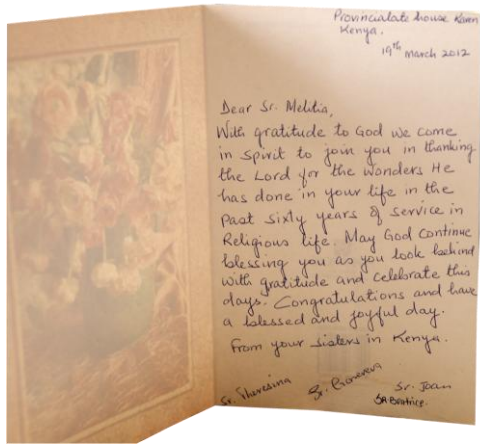 Provincialate house Karen
Kenya.
19th March 2012
Dear Sr. Melitia,
With gratitude to God we come
in spirit to join you in thanking
the Lord for the wonders He
has done in your life in the
past sixty years of service in
Religious life. May God continue
blessing you as you look behind
with gratitude and celebrate this
days. Congratulations and have
a blessed and joyful day.
From your sisters in Kenya.
Sr. Theresina Sr. Sr. Joan
SR Beatrice.